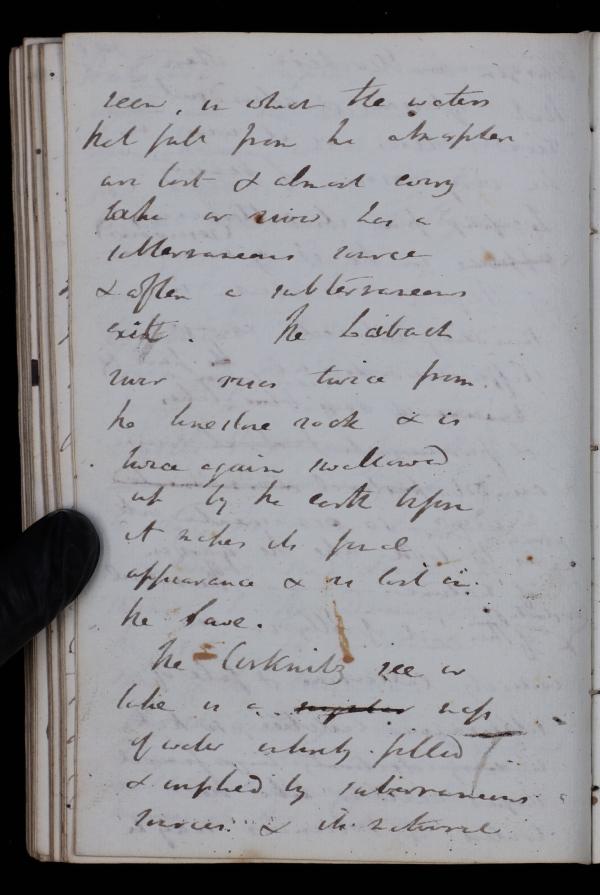 seen, in which the waters
that fall from the atmosphere
are lost & almost every
lake or river has a
subterraneous source
& often a subterraneous
exit. The Laibach
river rises twice from
the limestone rock & is
twice again swallowed
up by the earth before
it makes its final
appearance & is lost in
the Save.
The Cirknitz see or
lake is a singular mass
of water entirely filled
& emptied by subterraneous
sources & its natural